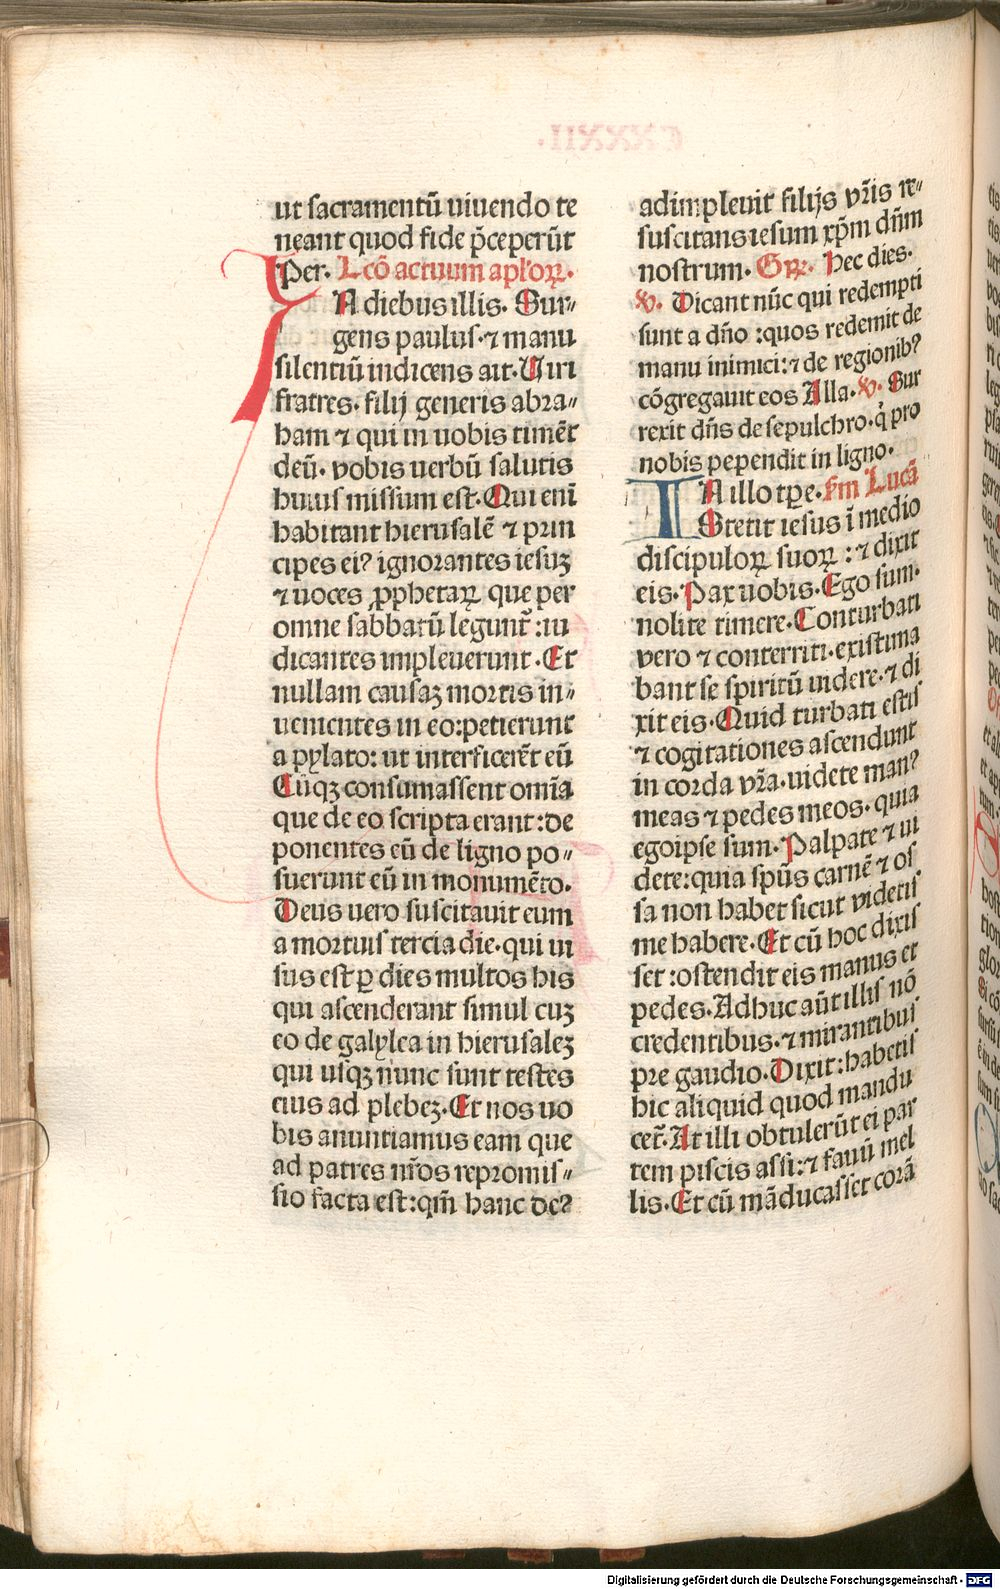 ut sacramentū uiuendo te
neant quod fide p̄ceperūt
Per. Lcō actuum apl'oꝝ.
IN diebus illis. Sur⸗
gens paulus·⁊ manu
silentiū indicens ait. Uiri
fratres. filij generis abra⸗
ham ⁊ qui in uobis timēt
deū. vobis uerbū salutis
huius missum est. Qui enī
habitant hierusalē ⁊ prin
cipes eiꝰ ignorantes iesuꝫ
⁊ uoces ꝓphetaꝝ que per
omne sabbatū legunt̄: iu
dicantes impleuerunt. Et
nullam causaꝫ mortis in⸗
uenientes in eo: petierunt
a pylato: ut interficerēt eū
Cūqꝫ consumassent omīa
que de eo scripta erant: de
ponentes eū de ligno po⸗
suerunt eū in monumēto.
Deus uero suscitauit eum
a mortuis tercia die. qui ui
sus est ꝑ dies multos his
qui ascenderant simul cuꝫ
eo de galylea in hierusaleꝫ
qui usqꝫ nunc sunt testes
eius ad plebeꝫ. Et nos uo
bis anuntiamus eam que
ad patres nr̄os repromis⸗
sio facta est: qm̄ hanc deꝰ
adimpleuit filijs vr̄is re⸗
suscitans iesum xp̄m dn̄m
nostrum. Gꝝ. Hec dies.
℣. Dicant nūc qui redempti
sunt a dn̄o: quos redemit de
manu inimici: ⁊ de regionibꝰ
cōgregauit eos Alla. ℣. Sur
rexit dn̄s de sepulchro. q̇ pro
nobis pependit in ligno.
IN illo tꝑe. ẜm Lucā
Stetit iesus ī medio
discipuloꝝ suoꝝ: ⁊ dixit
eis. Pax uobis. Ego sum.
nolite timere. Conturbati
vero ⁊ conterriti. existima
bant se spiritū uidere. ⁊ di
xit eis. Quid turbati estis
⁊ cogitationes ascendunt
in corda vr̄a. uidete manꝰ
meas ⁊ pedes meos. quia
egoipse sum. Palpate ⁊ ui
dete: quia spūs carnē ⁊ os
sa non habet sicut videtis
me habere. Et cū hoc dixis
set: ostendit eis manus et
pedes. Adhuc aūt illis nō
credentibus. ⁊ mirantibus
pre gaudio. Dixit: habetis
hic aliquid quod mandu
cet̄. At illi obtulerūt ei par
tem piscis assi: ⁊ fauū mel
lis. Et cū māducasset corā
Digitalisierung gefördert durch die Deutsche Forschungsgemeinschaft - DFG